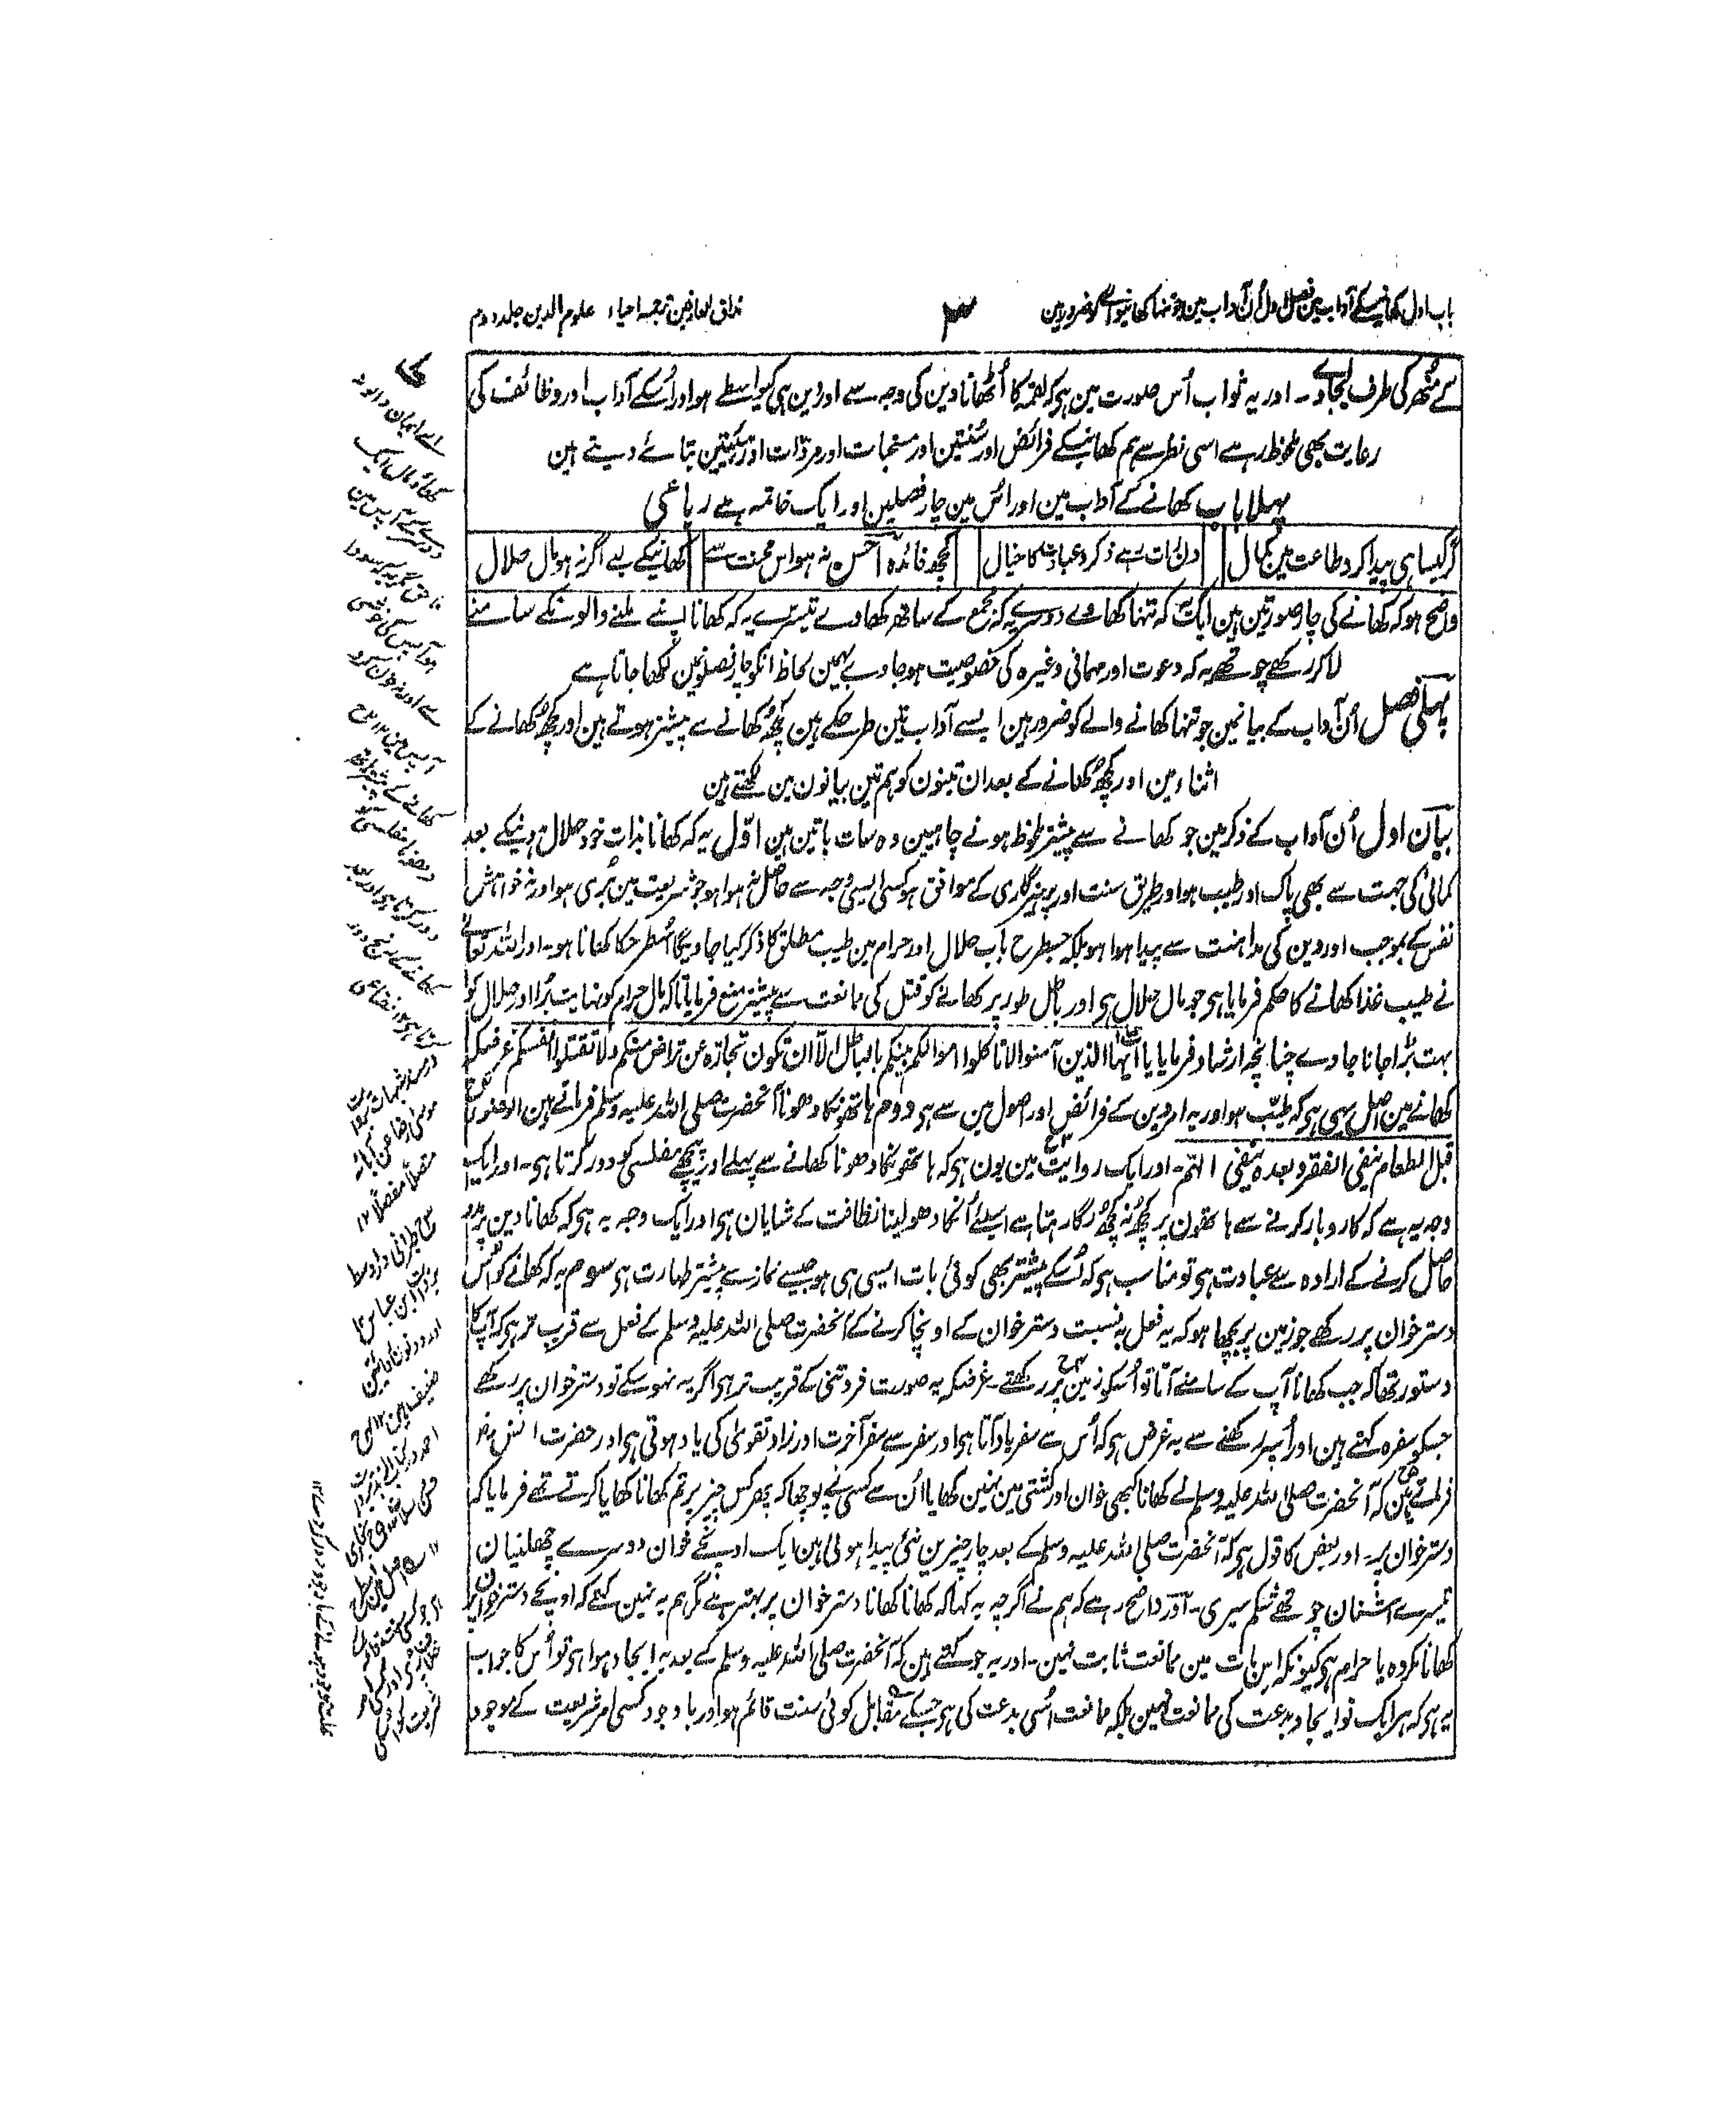 باب اول کھانیکے آداب مین فصل اول اُن آداب مین جو تنہا کھانیوالیکو ضرور ہین
۳
مذاق العارفین ترجمہ احیاء علوم الدین جلد دوم
کے مُنھ کی طرف لیجاوے۔ اور یہ ثواب اُس صورت مین ہی کہ لقمہ کا اُٹھانا دین کی وجہ سے اور دین ہی کیواسطے ہو اور اُسکے آداب اور وظائف کی
رعایت بھی ملحوظ رہے اسی نظر سے ہم کھانیکے فرائض اور سُنتین اور مستحبات اور مروّات اور ہیئتین بتائے دیتے ہین
پہلا باب کھانے کے آداب مین اور اس مین چار فصلین اور ایک خاتمہ ہے رباعی
گر کیسا ہی پیدا کرو طاعت مین کمال
دل رات رہے ذکر و عبادت کا خیال
کچھ فائدہ احسن نہ ہو اس محنت سے
کھانیکے لیے اگر نہ ہو مال حلال
واضح ہو کہ کھانے کی چار صورتین ہین ایک یہ کہ تنہا کھاوے دوسرے یہ کہ مجمع کے ساتھ کھاوے تیسرے یہ کہ کھانا اپنے ملنے والونکے سامنے
لاکر رکھے چوتھے یہ کہ دعوت اور مہمانی وغیرہ کی خصوصیت ہو جاوے بہمین لحاظ انکو چار فصلونمین لکھا جاتا ہے
پہلی فصل اُن آداب کے بیانمین جو تنہا کھانے والے کو ضرور ہین ایسے آداب تین طرحکے ہین کچھ کھانے سے پیشتر ہوتے ہین اور کچھ کھانے کے
اثناء مین اور کچھ کھانے کے بعد ان تینون کو ہم تین بیانون مین لکھتے ہین
بیان اول اُن آداب کے ذکر مین جو کھانے سے پیشتر ملحوظ ہونے چاہیین وہ سات باتین ہین اوّل یہ کہ کھانا بذات خود حلال ہونیکے بعد
کمائی کی جہت سے بھی پاک اور طیب ہو اور طریق سنت اور پرہیزگاری کے موافق ہو کسی ایسی وجہ سے حاصل نہ ہوا ہو جو شریعت مین بُری ہو اور نہ خواہش
نفس کے بموجب اور دین کی مداہنت سے پیدا ہوا ہو بلکہ جسطرح باب حلال اور حرام مین طیب مطلق کا ذکر کیا جاویگا اُسطرحکا کھانا ہو۔ اور اللہ تعالے
نے طیب غذا کھانے کا حکم فرمایا ہی جو مال حلال ہی اور باطل طور پر کھانے کو قتل کی ممانعت سے پیشتر منع فرمایا تاکہ مال حرام کو نہایت بُرا اور حلال کو
بہت بڑا جانا جاوے چنانچہ ارشاد فرمایا یا ایہا الذین آمنوا لا تاکلوا اموالکم بینکم بالباطل الّا ان تکون تجارۃ عن تراض منکم ولا تقتلوا انفسکم غرضکہ
کھانے مین اصل یہی ہی کہ طیّب ہو اور یہ امر دین کے فرائض اور اصول مین سے ہی دوم ہاتھونکا دھونا آنحضرت صلی اللہ علیہ وسلم فرماتے ہین الوضوء
قبل الطعام ینفی الفقر و بعدہ ینفی اللمم۔ اور ایک روایت مین یون ہی کہ ہاتھونکا دھونا کھانے سے پہلے اور پیچھے مفلسی کو دور کرتا ہی۔ اور ایک
وجہ یہ ہے کہ کاروبار کرنے سے ہاتھون پر کچھ نہ کچھ لگا رہتا ہے اسلئے اُنکا دھولینا نظافت کے شایان ہی اور ایک وجہ یہ ہی کہ کھانا دین پر مدد
حاصل کرنے کے ارادہ سے عبادت ہی تو مناسب ہی کہ اُسکے پیشتر بھی کوئی بات ایسی ہی ہو جیسے نماز سے پیشتر طہارت ہی سوم یہ کہ کھانے کو اُس
دسترخوان پر رکھے جو زمین پر بچھا ہو کہ یہ فعل بہ نسبت دسترخوان کے اونچا کرنے کے آنحضرت صلی اللہ علیہ وسلم کے فعل سے قریب تر ہی کہ آپ کا
دستور تھا کہ جب کھانا آپ کے سامنے آتا تو اُسکو زمین پر رکھتے۔ غرضکہ یہ صورت فروتنی کے قریب تر ہی اگر یہ نہو سکے تو دسترخوان پر رکھے
جسکو سفرہ کہتے ہین اور اُسپر رکھنے سے یہ غرض ہی کہ اُس سے سفر یاد آتا ہی اور سفر سے سفر آخرت اور زاد تقویٰ کی یاد ہوتی ہی اور حضرت انس رضہ
فرماتے ہین کہ آنحضرت صلی اللہ علیہ وسلم نے کھانا کبھی خوان اور کشتی مین نہین کھایا اُن سے کسی نے پوچھا کہ پھر کس چیز پر تم کھانا کھایا کرتے تھے فرمایا کہ
دسترخوان پر۔ اور بعض کا قول ہی کہ آنحضرت صلی اللہ علیہ وسلم کے بعد چار چیزین نئی پیدا ہوئی ہین ایک اونچے خوان دوسرے چھلنیان
تیسرے اشنان چوتھے شکم سیری۔ اور واضح رہے کہ ہم نے اگرچہ یہ کہا کہ کھانا کھانا دسترخوان پر بہتر ہے مگر ہم یہ نہین کہتے کہ اونچے دسترخوان پر
کھانا مکروہ یا حرام ہی کیونکہ اس بات مین ممانعت ثابت نہین۔ اور یہ جو کہتے ہین کہ آنحضرت صلی اللہ علیہ وسلم کے بعد یہ ایجاد ہوا ہی تو اُس کا جواب
یہ ہی کہ ہر ایک نو ایجاد بدعت کی ممانعت نہین بلکہ ممانعت اُسی بدعت کی ہی جسکے مقابل کوئی سنت قائم ہو اور باوجود کسی امر شریعت کے موجود
اے ایمان والو نہ
کھاؤ مال ایک
دوسرے کے آپس مین
ناحق مگر یہ کہ سودا
ہو آپس کی خوشی
سے اور نہ خون کرو
آپس مین ۱۲
کھانے کے پیشتر ہاتھ
دھونا مفلسی کو
دور کرتا ہی اور بعد
کھانے کے رنج دور
کرتا ہی